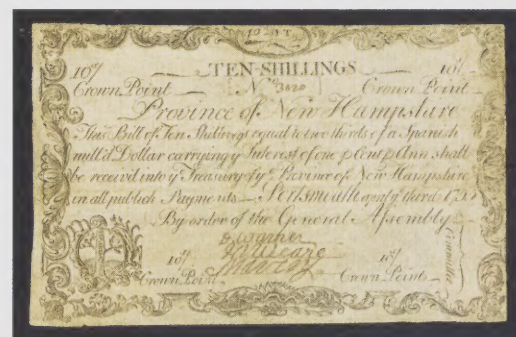 TEN-SHILLINGS
10/ 10/
Crown Point No 3020 Crown Point
Province of New Hampshire
This Bill of Ten Shillings equal to two thirds of a Spanish
mill'd Dollar carrying yͤ Interest of one p Cent p Ann shall
be received into yͤ Treasury of yͤ Province of New Hampshire
in all publick Payments Portsmouth april yͤ third 175
By order of the General Assembly
Committee
10/ 10/
Crown Point Crown Point